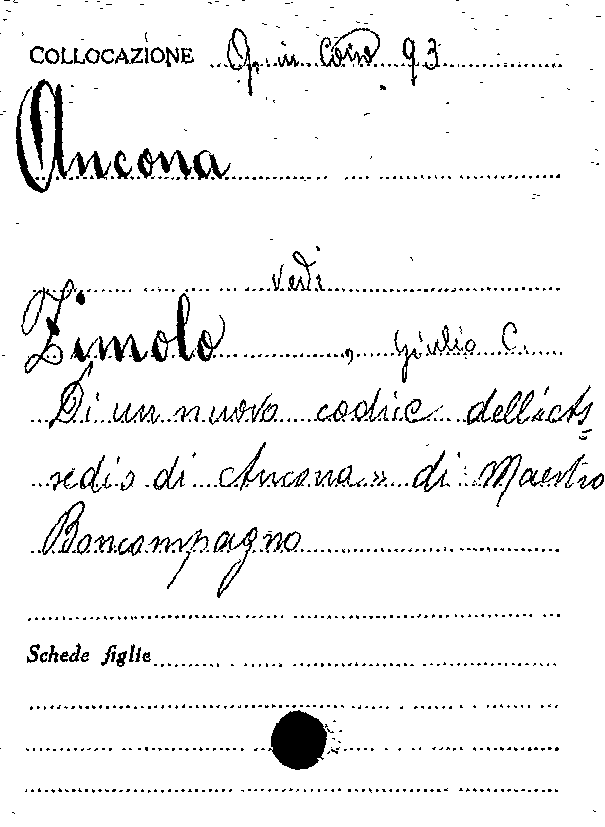 COLLOCAZIONE Op. in Cors 93
Ancona
vedi
Zimolo, Giulio C.
Di un nuovo codice dell'«As=
sedio di Ancona» di Maestro
Boncompagno
Schede figlie